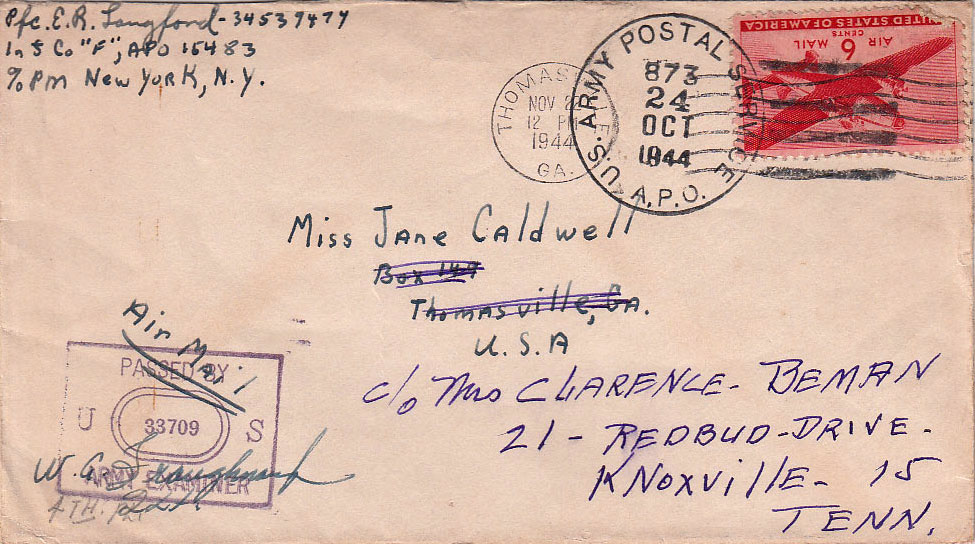 Pfc. E.R. Langford-34539474
Inf Co "F", APO 15483
℅ PM New York, N.Y.
UNITED STATES OF AMERICA
AIR MAIL
6 CENTS
THOMAS LE
NOV 22
12 P
1944
GA.
U.S. ARMY POSTAL SERVICE
873
24
OCT
1944
A.P.O.
Miss Jane Caldwell
Box 149
Thomasville, Ga.
U.S.A
c/o Mrs CLARENCE- BEMAN
21 - REDBUD-DRIVE-
KNOXVILLE- 15
TENN.
Air Mail
PASSED BY
U 33709 S
ARMY EXAMINER
W. G.